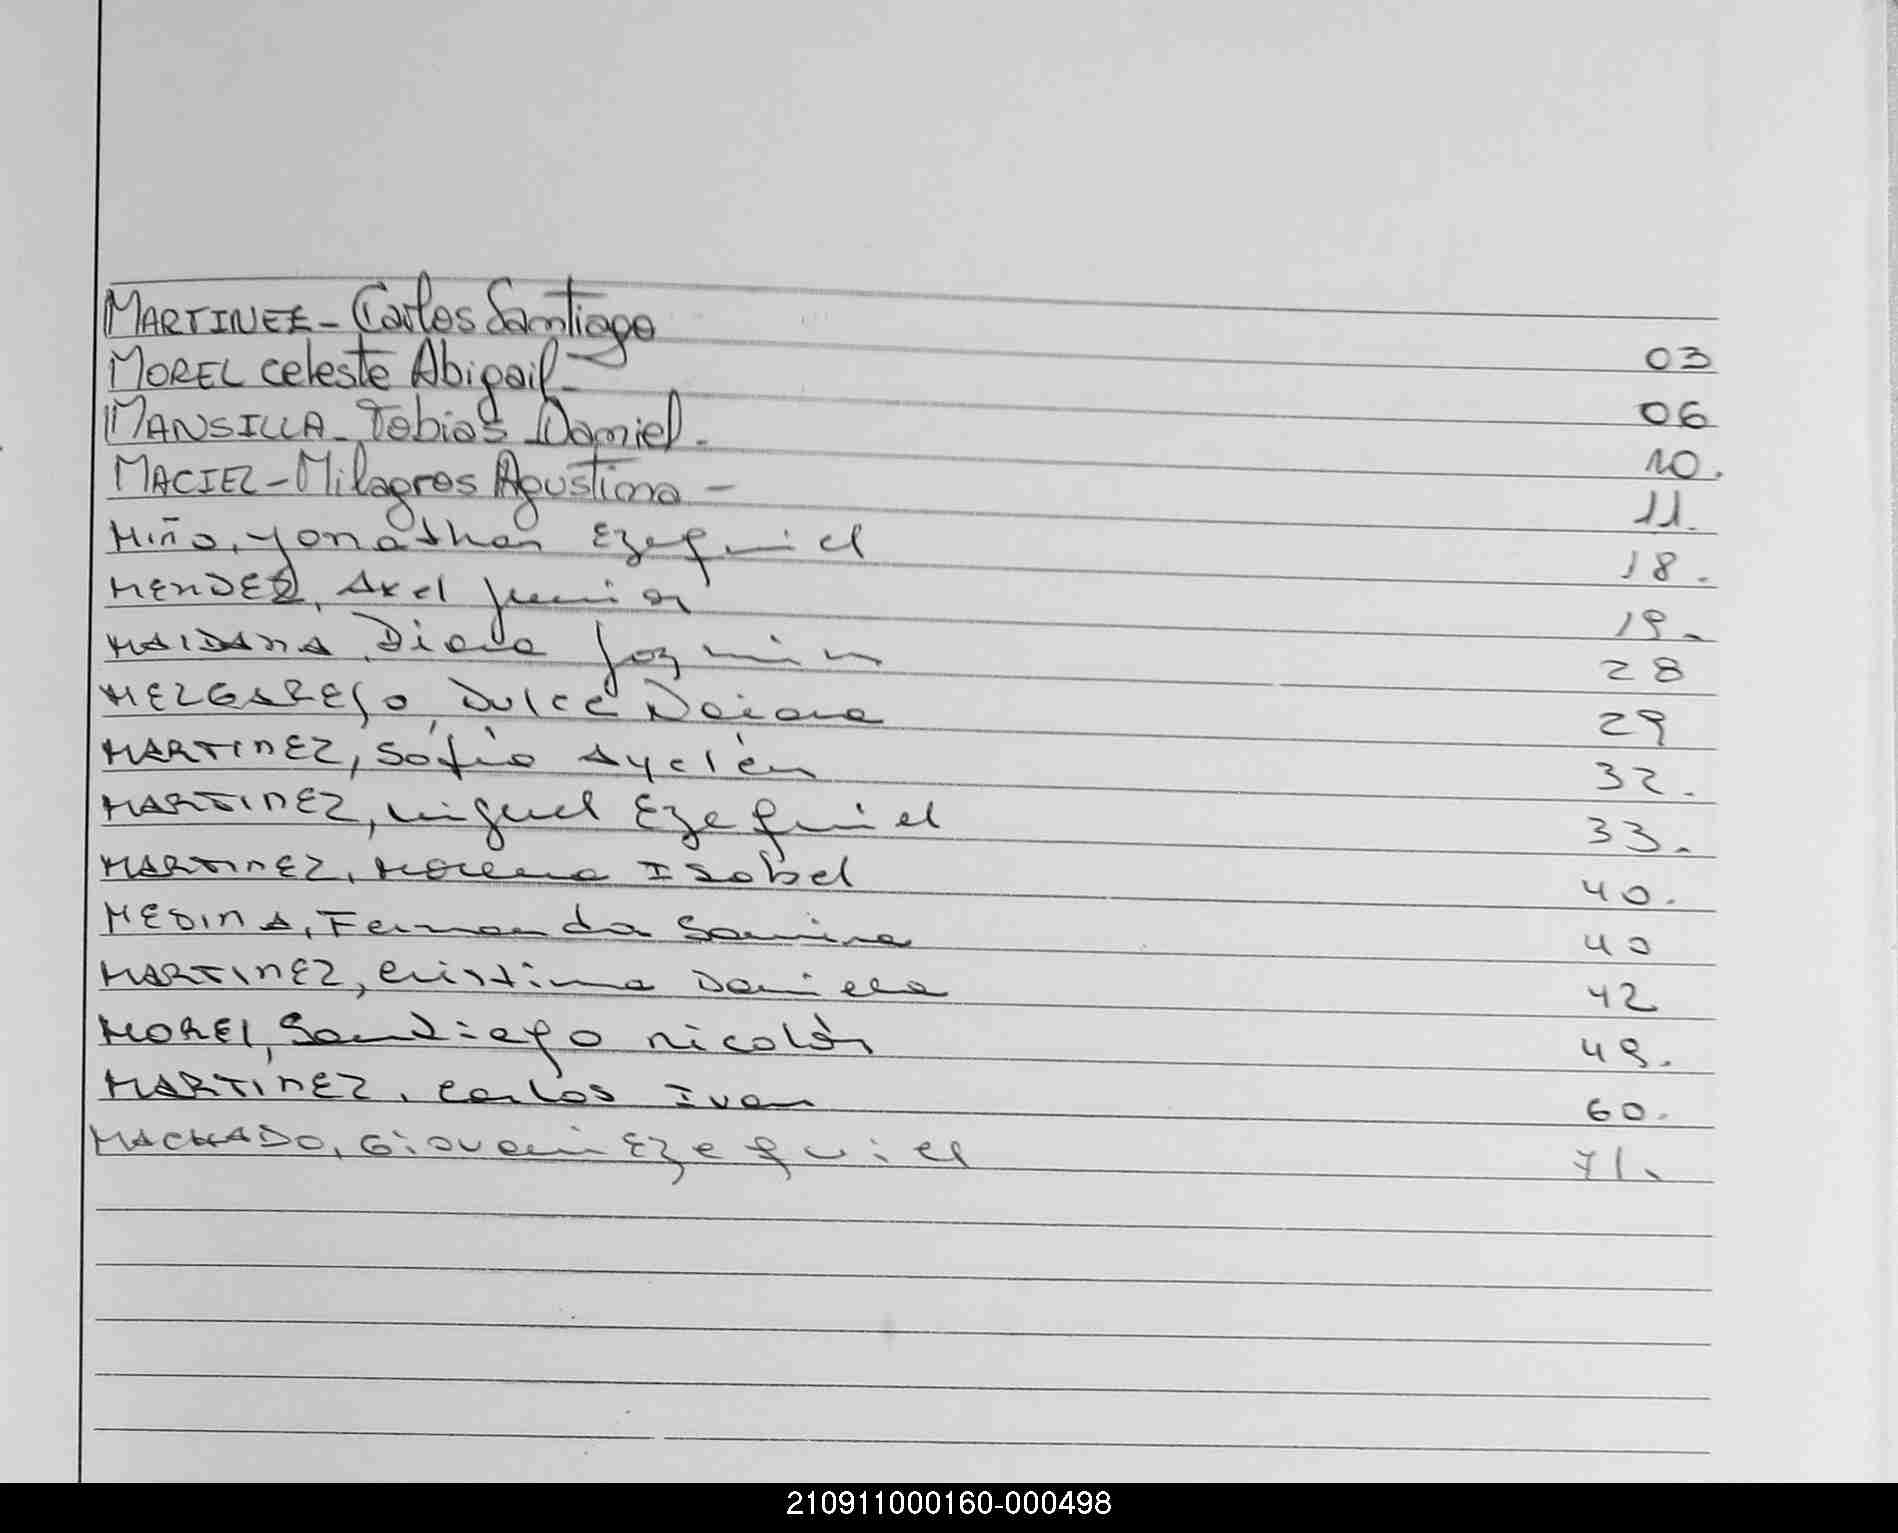 MARTINEZ - Carlos Santiago 03
MOREL Celeste Abigail - 06
MANSILLA - Tobias Daniel - 10.
MACIEL - Milagros Agustina - 11.
Miño, Yonathan Ezequiel 18.
MENDEZ, Axel Junior 19.
MAIDANA, Diana Jazmin 28
MELGAREJO, Dulce Daiana 29
MARTINEZ, Sofía Ayelén 32.
MARTINEZ, Miguel Ezequiel 33.
MARTINEZ, Morena Isabel 40.
MEDINA, Fernanda Samira 40
MARTINEZ, Cristina Daniela 42
MOREL, Santiago Nicolás 49.
MARTINEZ, Carlos Ivan 60.
MACHADO, Giovani Ezequiel 71.
210911000160-000498